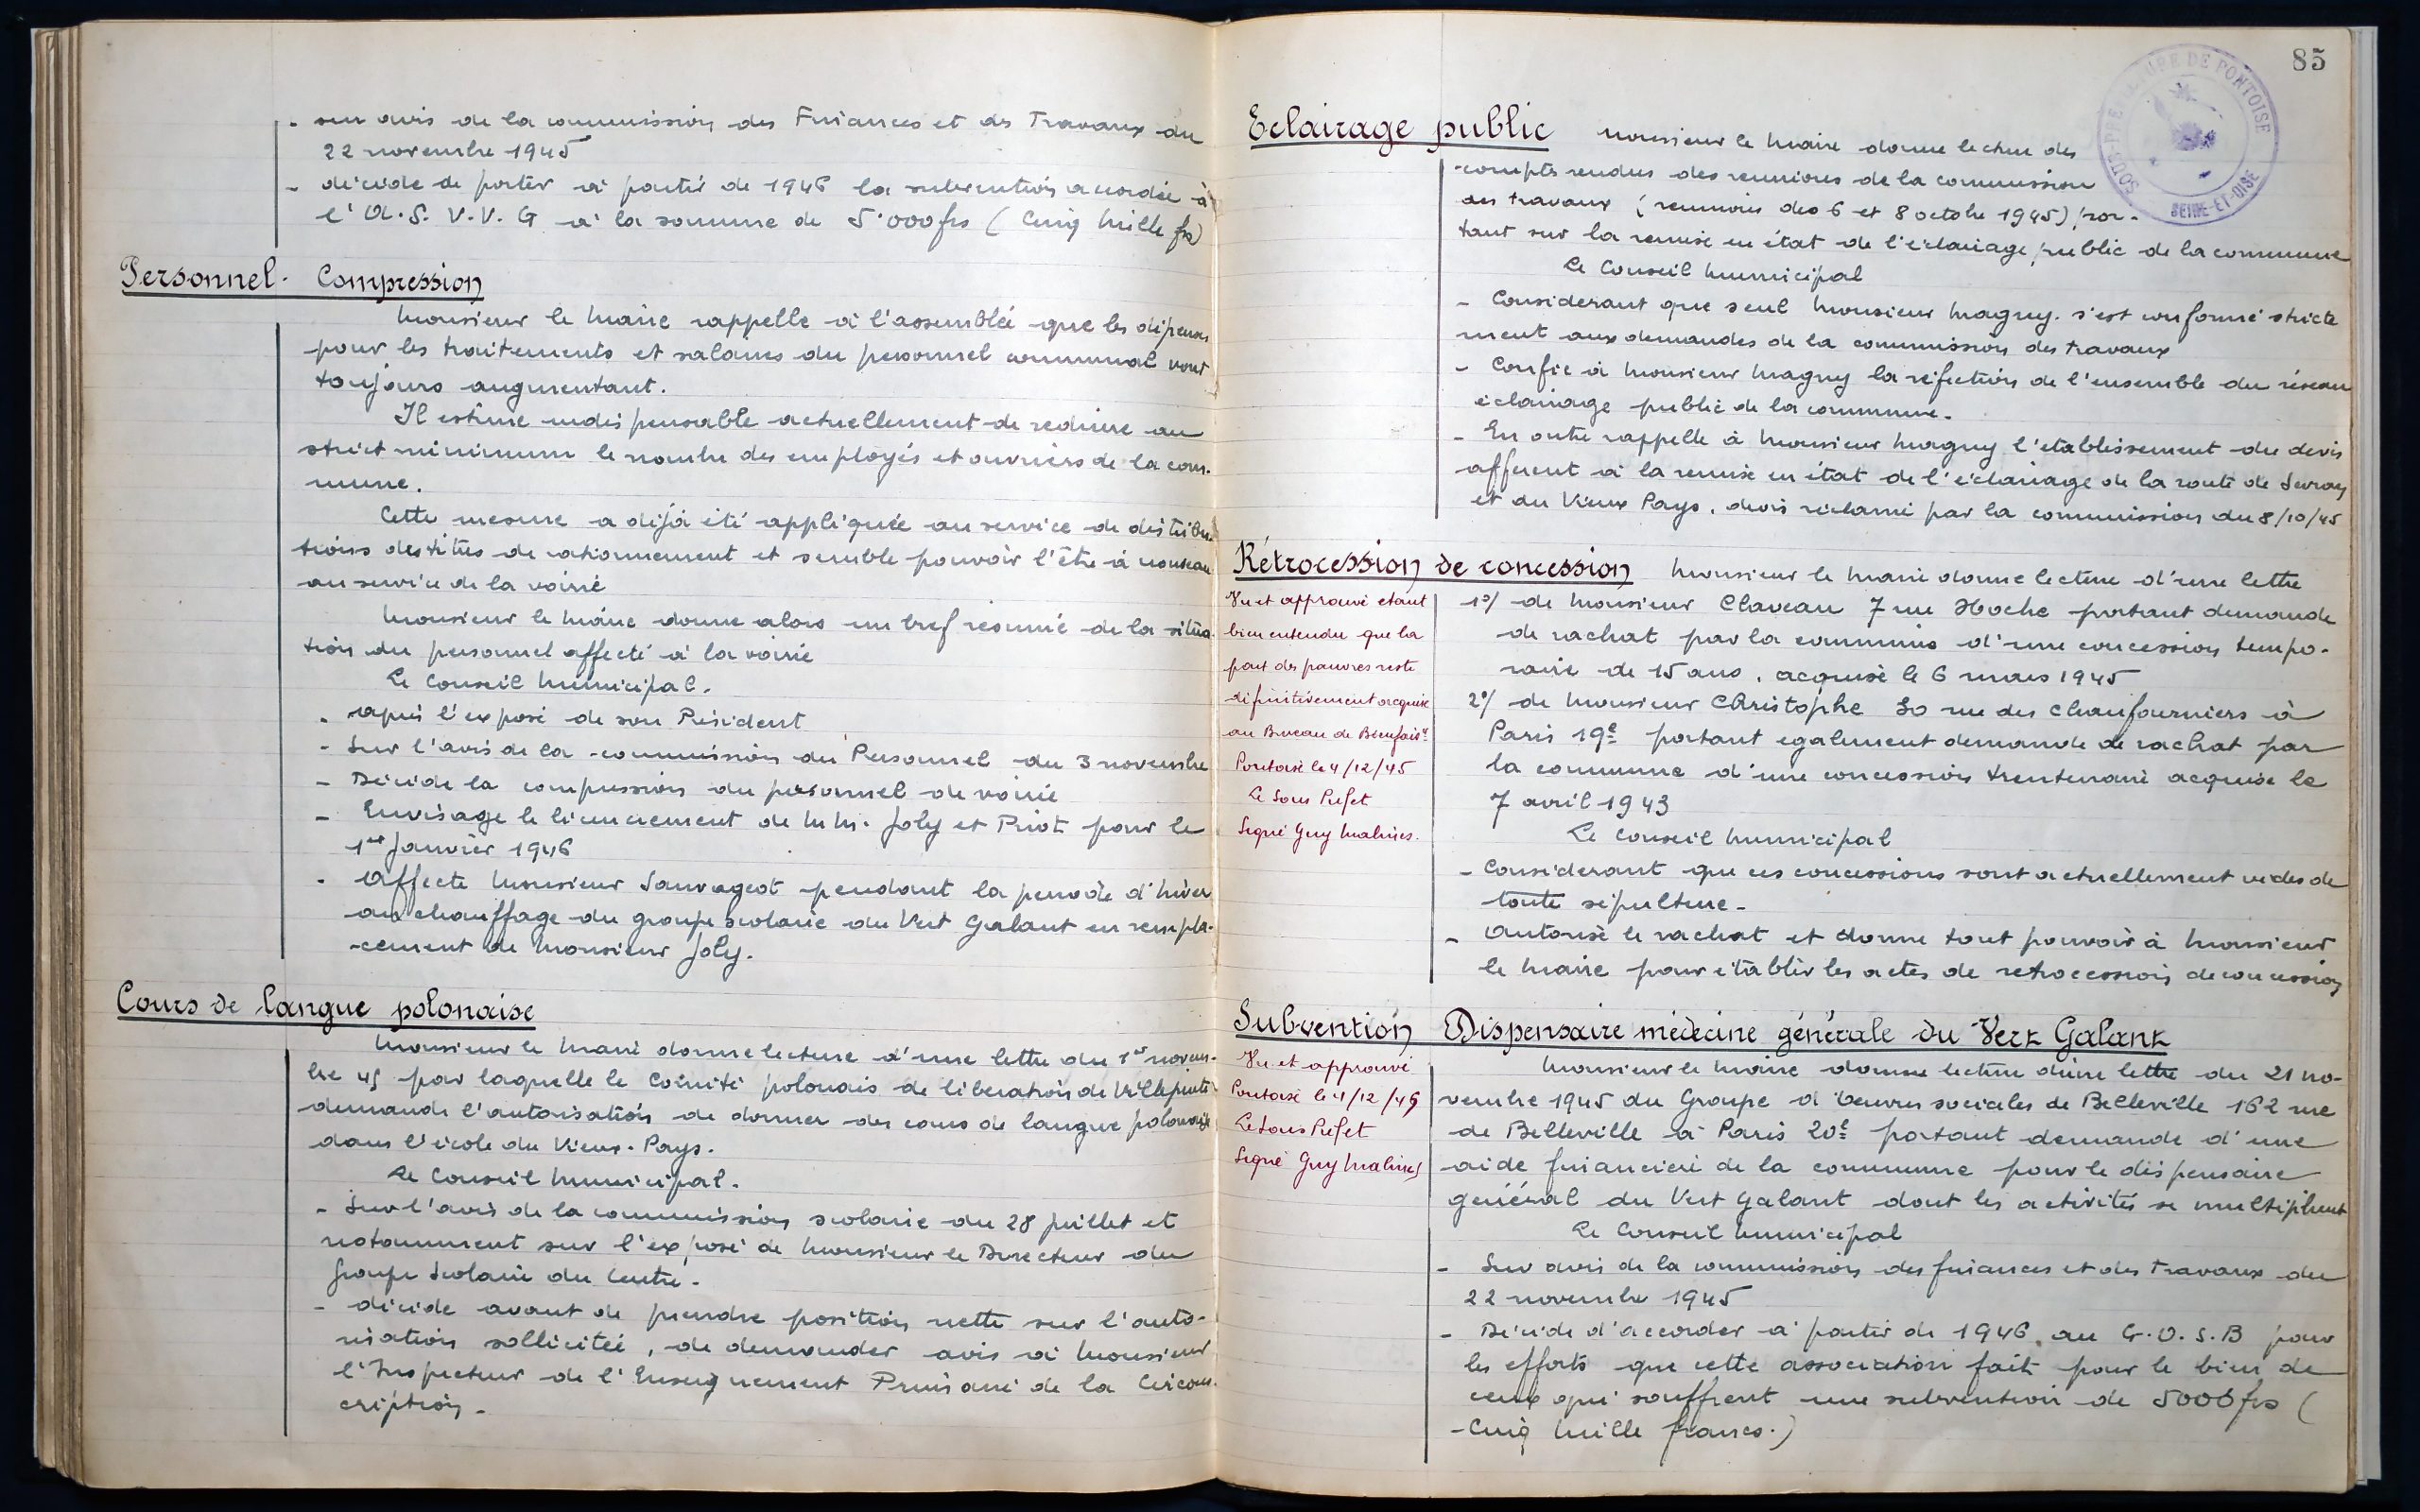 - sur avis de la commission des Finances et des Travaux du
22 novembre 1945
- décide de porter à partir de 1946 la subvention accordée à
l'A.S.V.V.G à la somme de 5.000 frs (Cinq mille frs)
Personnel - Compression
Monsieur le Maire rappelle à l'assemblée que les dépenses
pour les traitements et salaires du personnel communal vont
toujours augmentant.
Il estime indispensable actuellement de réduire au
strict minimum le nombre des employés et ouvriers de la com-
mune.
Cette mesure a déjà été appliquée au service de distribu
tions des titres de rationnement et semble pouvoir l'être à nouveau
au service de la voirie
Monsieur le Maire donne alors un bref résumé de la situa-
tion du personnel affecté à la voirie
Le Conseil Municipal.
- après l'exposé de son Président
- Sur l'avis de la commission du Personnel du 3 novembre
- Décide la compression du personnel de voirie
- Envisage le licenciement de M M. Joly et Priot pour le
1er Janvier 1946
- Affecte Monsieur Sauvageot pendant la période d'hiver
au chauffage du groupe scolaire du Vert Galant en rempla-
cement de Monsieur Joly.
Cours de langue polonaise
Monsieur le Maire donne lecture d'une lettre du 1er novem-
bre 45 par laquelle le Comité polonais de libération de Villepinte
demande l'autorisation de donner des cours de langue polonaise
dans l'école du Vieux-Pays.
Le Conseil Municipal.
- Sur l'avis de la commission scolaire du 28 juillet et
notamment sur l'exposé de Monsieur le Directeur du
Groupe Scolaire du Centre.
- décide avant de prendre position nette sur l'auto-
risation sollicitée, de demander avis à Monsieur
l'Inspecteur de l'Enseignement Primaire de la Circons-
cription.
85
SOUS-PREFECTURE DE PONTOISE
SEINE-ET-OISE
Eclairage public Monsieur le Maire donne lecture des
comptes rendus des réunions de la commission
des travaux (réunions des 6 et 8 octobre 1945) por-
tant sur la remise en état de l'éclairage public de la commune
Le Conseil Municipal
- Considerant que seul Monsieur Magny s'est conformé stricte
ment aux demandes de la commission des travaux
- Confie à Monsieur Magny la réfection de l'ensemble du réseau
éclairage public de la commune.
- En outre rappelle à Monsieur Magny l'etablissement du devis
afferent à la remise en état de l'éclairage de la route de Sevran
et du Vieux Pays, devis réclamé par la commission du 8/10/45
Rétrocession de concession Monsieur le Maire donne lecture d'une lettre
1°/ de Monsieur Claveau 7 rue Hoche portant demande
de rachat par la commune d'une concession tempo-
raire de 15 ans, acquise le 6 mars 1945
2°/ de Monsieur Christophe 30 rue des Chaufourniers à
Paris 19e portant egalement demande de rachat par
la commune d'une concession trentenaire acquise le
7 avril 1943
Le Conseil Municipal
- Considerant que ces concessions sont actuellement vides de
toute sépulture.
- Autorise le rachat et donne tout pouvoir à Monsieur
le Maire pour établir les actes de retrocession de concession
Vu et approuvé etant
bien entendu que la
part des pauvres reste
définitivement acquise
au Bureau de Bienfais ce
Pontoise le 4/12/45
Le Sous Prefet
Signé Guy Malines.
Subvention Dispensaire médecine générale du Vert Galant
Monsieur le Maire donne lecture d'une lettre du 21 no-
vembre 1945 du Groupe d'oeuvres sociales de Belleville 162 rue
de Belleville à Paris 20e portant demande d'une
aide financière de la commune pour le dispensaire
général du Vert Galant dont les activités se multiplient
Le Conseil Municipal
- Sur avis de la commission des finances et des travaux du
22 novembre 1945
- Décide d'accorder à partir de 1946, au G.O.S.B pour
les efforts que cette association fait pour le bien de
ceux qui souffrent une subvention de 5000 frs (
Cinq mille francs.)
Vu et approuvé
Pontoise le 4/12/45
Le Sous Prefet
Signé Guy Malines